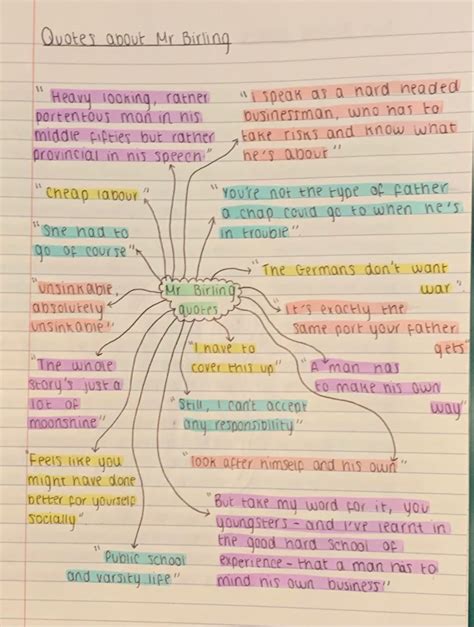 Quotes about Mr Birling
"Heavy looking, rather
portentous man in his
middle fifties but rather
provincial in his speech"
"I speak as a hard headed
businessman, who has to
take risks and know what
he's about"
"cheap labour"
"you're not the type of father
a chap could go to when he's
in trouble"
"She had to
go of course"
"The Germans don't want
war"
"unsinkable,
absolutely
unsinkable"
Mr Birling
quotes
"It's exactly the
same port your father
gets"
"I have to
cover this up"
"The whole
story's just a
lot of
moonshine"
"A man has
to make his own
way"
"Still, I can't accept
any responsibility"
"Feels like you
might have done
better for yourself
socially"
"look after himself and his own"
"But take my word for it, you
youngsters - and I've learnt in
the good hard school of
experience - that a man has to
mind his own business"
"Public school
and varsity life"